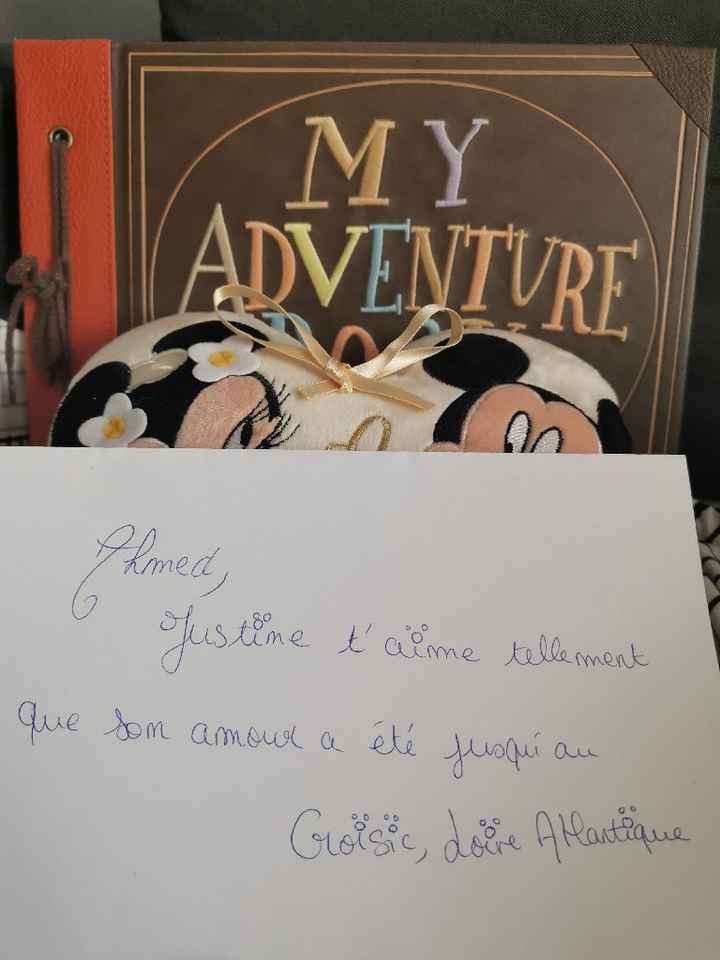 MY
ADVENTURE
Ahmed,
Justine t'aime tellement
que son amour a été jusqu'au
Croisic, Loire Atlantique